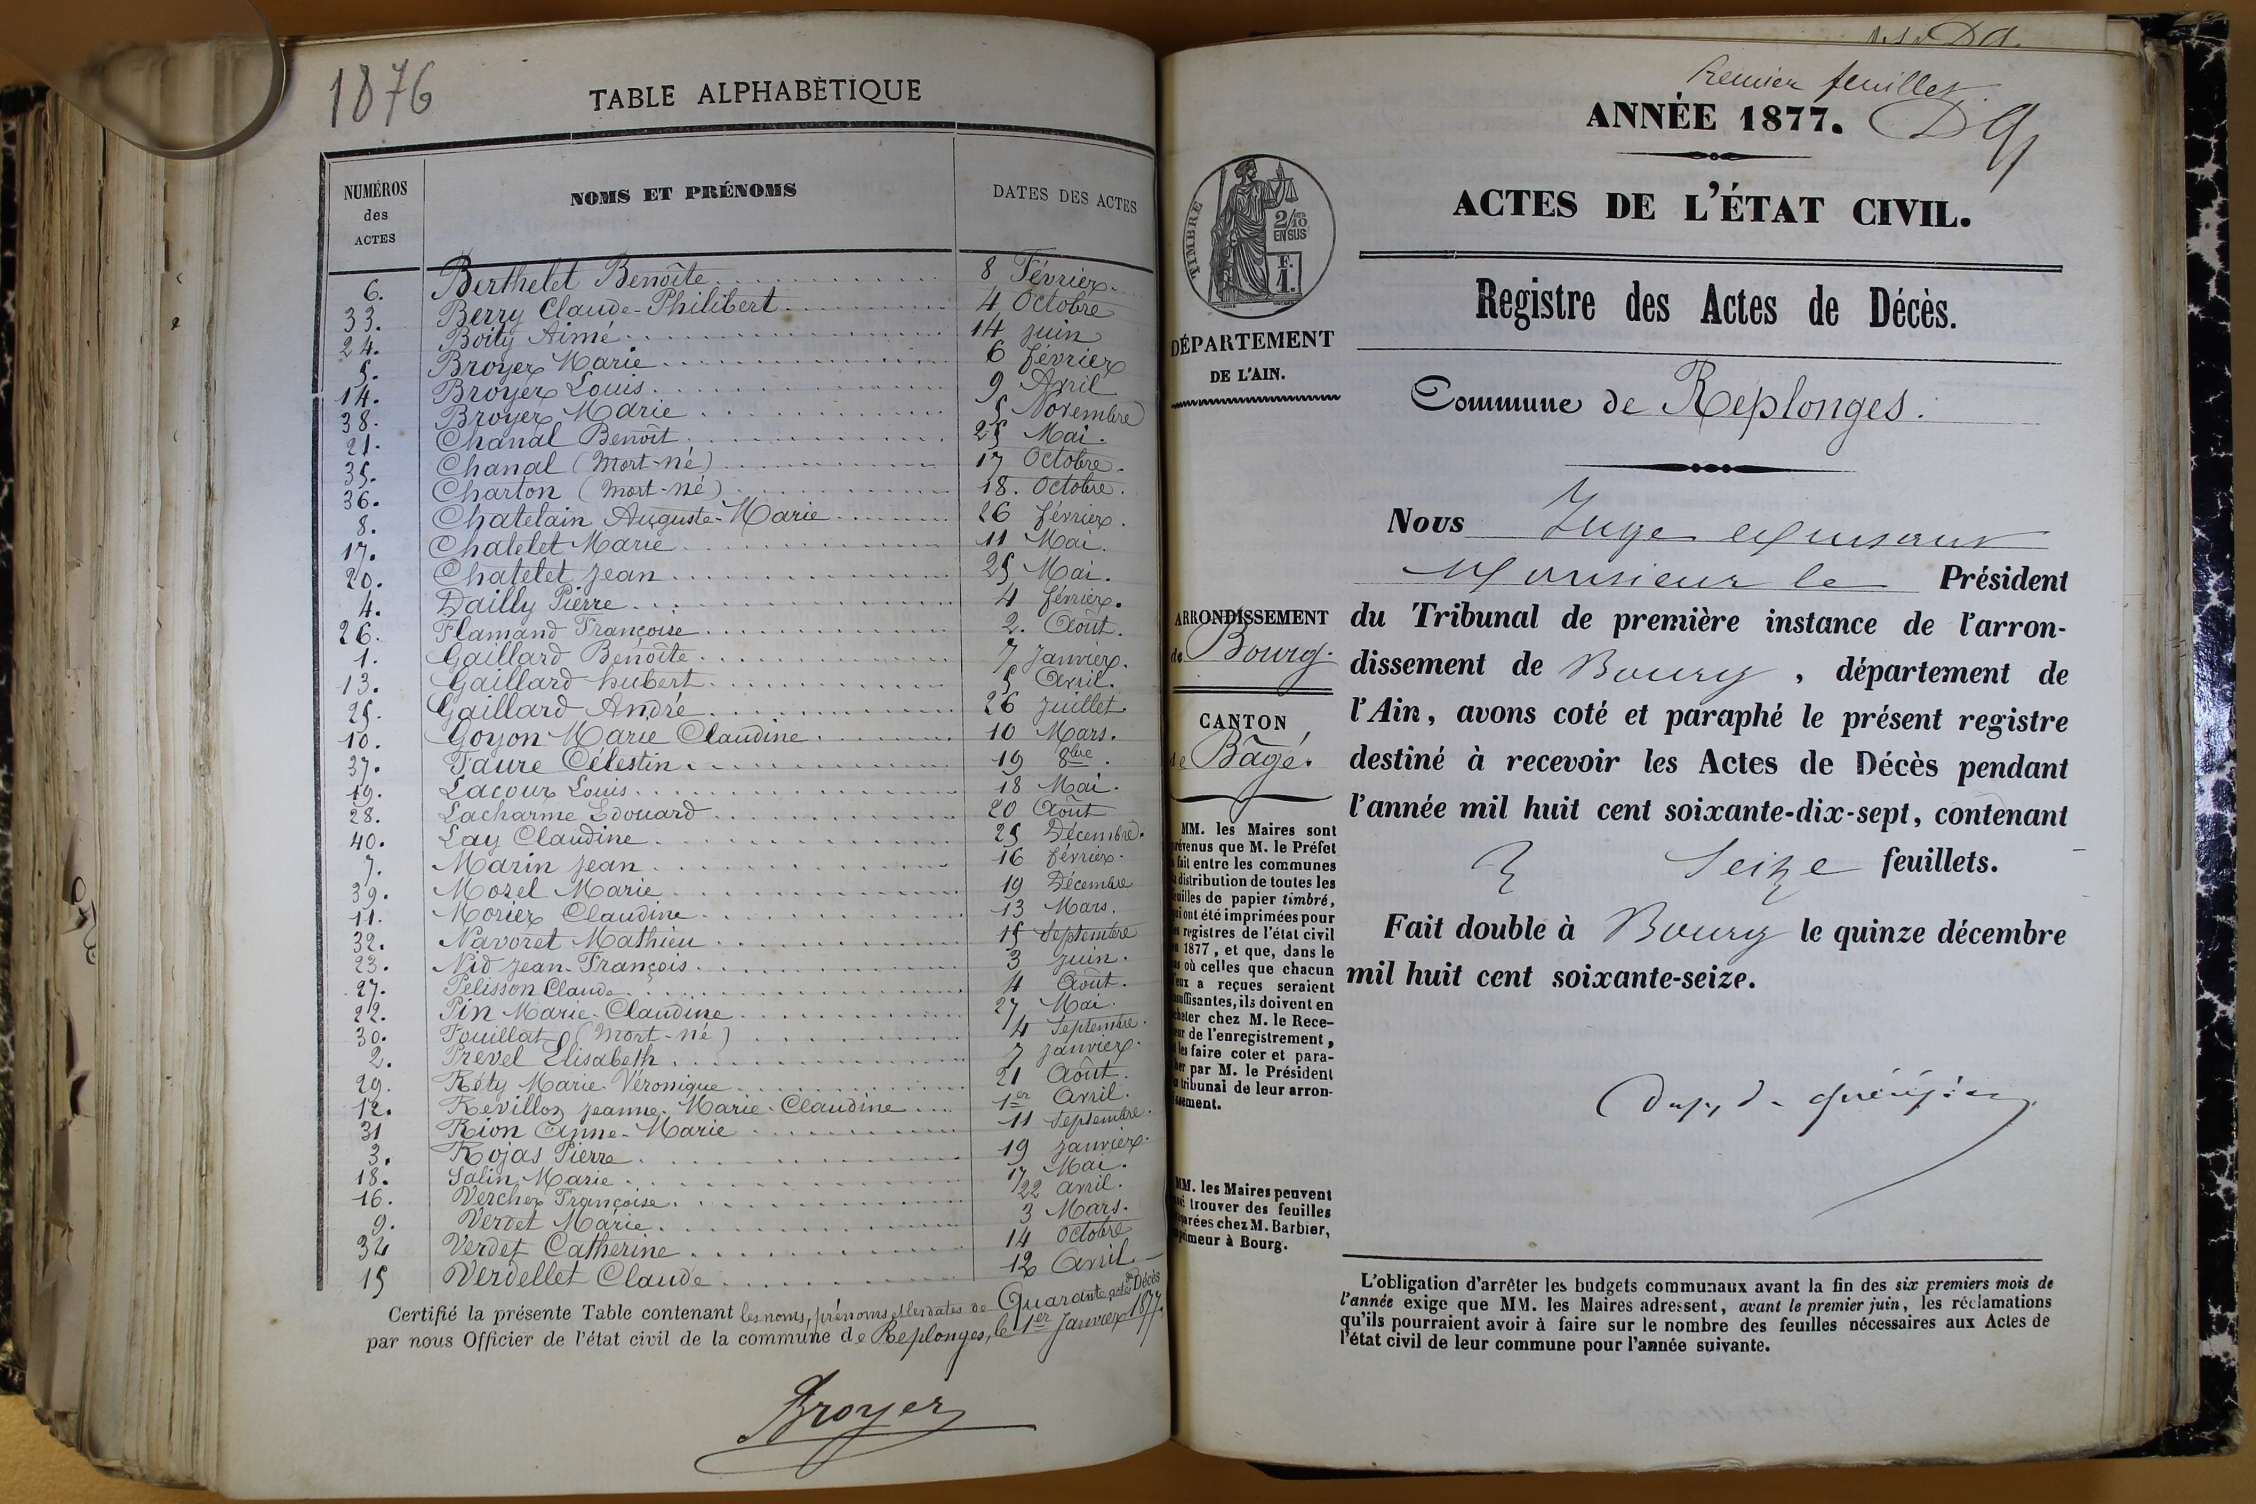 1876
TABLE ALPHABÉTIQUE
NUMÉROS des ACTES NOMS ET PRÉNOMS DATES DES ACTES
6. Berthelet Benoîte 8 Février.
33. Berry Claude-Philibert 4 Octobre
24. Boity Aimé 14 juin
5. Broyer Marie 6 février
14. Broyer Louis 9 Avril
38. Broyer Marie 5 Novembre
21. Chanal Benoît 25 Mai.
35. Chanal (Mort-né) 17 Octobre.
36. Charton (Mort-né) 18. Octobre.
8. Chatelain Auguste-Marie 26 février.
17. Chatelet Marie 11 Mai.
20. Chatelet Jean 25 Mai.
4. Dailly Pierre 4 février.
26. Flamand Françoise 2. Août.
1. Gaillard Benoîte 7 Janvier.
13. Gaillard hubert 5 Avril.
25. Gaillard André 26 Juillet
10. Goyon Marie Claudine 10 Mars.
37. Faure Célestin 19 8bre.
19. Lacour Louis 18 Mai.
28. Lacharme Edouard 20 Août
40. Lay Claudine 25 Décembre.
7. Marin Jean 16 février.
39. Morel Marie 19 Décembre
11. Morier Claudine 13 Mars.
32. Navoret Mathieu 15 Septembre
23. Nid Jean-François 3 juin.
27. Pelisson Claude 4 Août.
22. Pin Marie-Claudine 27 Mai.
30. Pouillat (Mort-né) 4 Septembre.
2. Prevel Elisabeth 7 Janvier.
29. Réty Marie-Véronique 21 Août.
12. Revillon Jeanne-Marie-Claudine 1er Avril.
31 Rion Anne-Marie 11 Septembre.
3. Rojas Pierre 19 Janvier.
18. Salin Marie 17 Mai.
16. Verchex Françoise 22 avril.
9. Verdet Marie 3 Mars.
34 Verdet Catherine 14 Octobre
15 Verdellet Claude 12 Avril
Certifié la présente Table contenant les noms, prénoms et les dates de Quarante actes de Décès
par nous Officier de l'état civil de la commune de Replonges, le 1er Janvier 1877.
Broyer
Premier feuillet
ANNÉE 1877.
ACTES DE L'ÉTAT CIVIL.
TIMBRE
2/10
EN SUS
F.
1.
DÉPARTEMENT
DE L'AIN.
Registre des Actes de Décès.
Commune de Replonges.
Nous Juge
Monsieur le Président
ARRONDISSEMENT
de Bourg.
CANTON
de Bâgé.
du Tribunal de première instance de l'arron-
dissement de Bourg, département de
l'Ain, avons coté et paraphé le présent registre
destiné à recevoir les Actes de Décès pendant
l'année mil huit cent soixante-dix-sept, contenant
Seize feuillets.
Fait double à Bourg le quinze décembre
mil huit cent soixante-seize.
MM. les Maires sont
prévenus que M. le Préfet
a fait entre les communes
la distribution de toutes les
feuilles de papier timbré,
qui ont été imprimées pour
les registres de l'état civil
en 1877, et que, dans le
cas où celles que chacun
d'eux a reçues seraient
insuffisantes, ils doivent en
acheter chez M. le Rece-
veur de l'enregistrement,
et les faire coter et para-
pher par M. le Président
du tribunal de leur arron-
dissement.
MM. les Maires peuvent
trouver des feuilles
timbrées chez M. Barbier,
imprimeur à Bourg.
L'obligation d'arrêter les budgets communaux avant la fin des six premiers mois de
l'année exige que MM. les Maires adressent, avant le premier juin, les réclamations
qu'ils pourraient avoir à faire sur le nombre des feuilles nécessaires aux Actes de
l'état civil de leur commune pour l'année suivante.